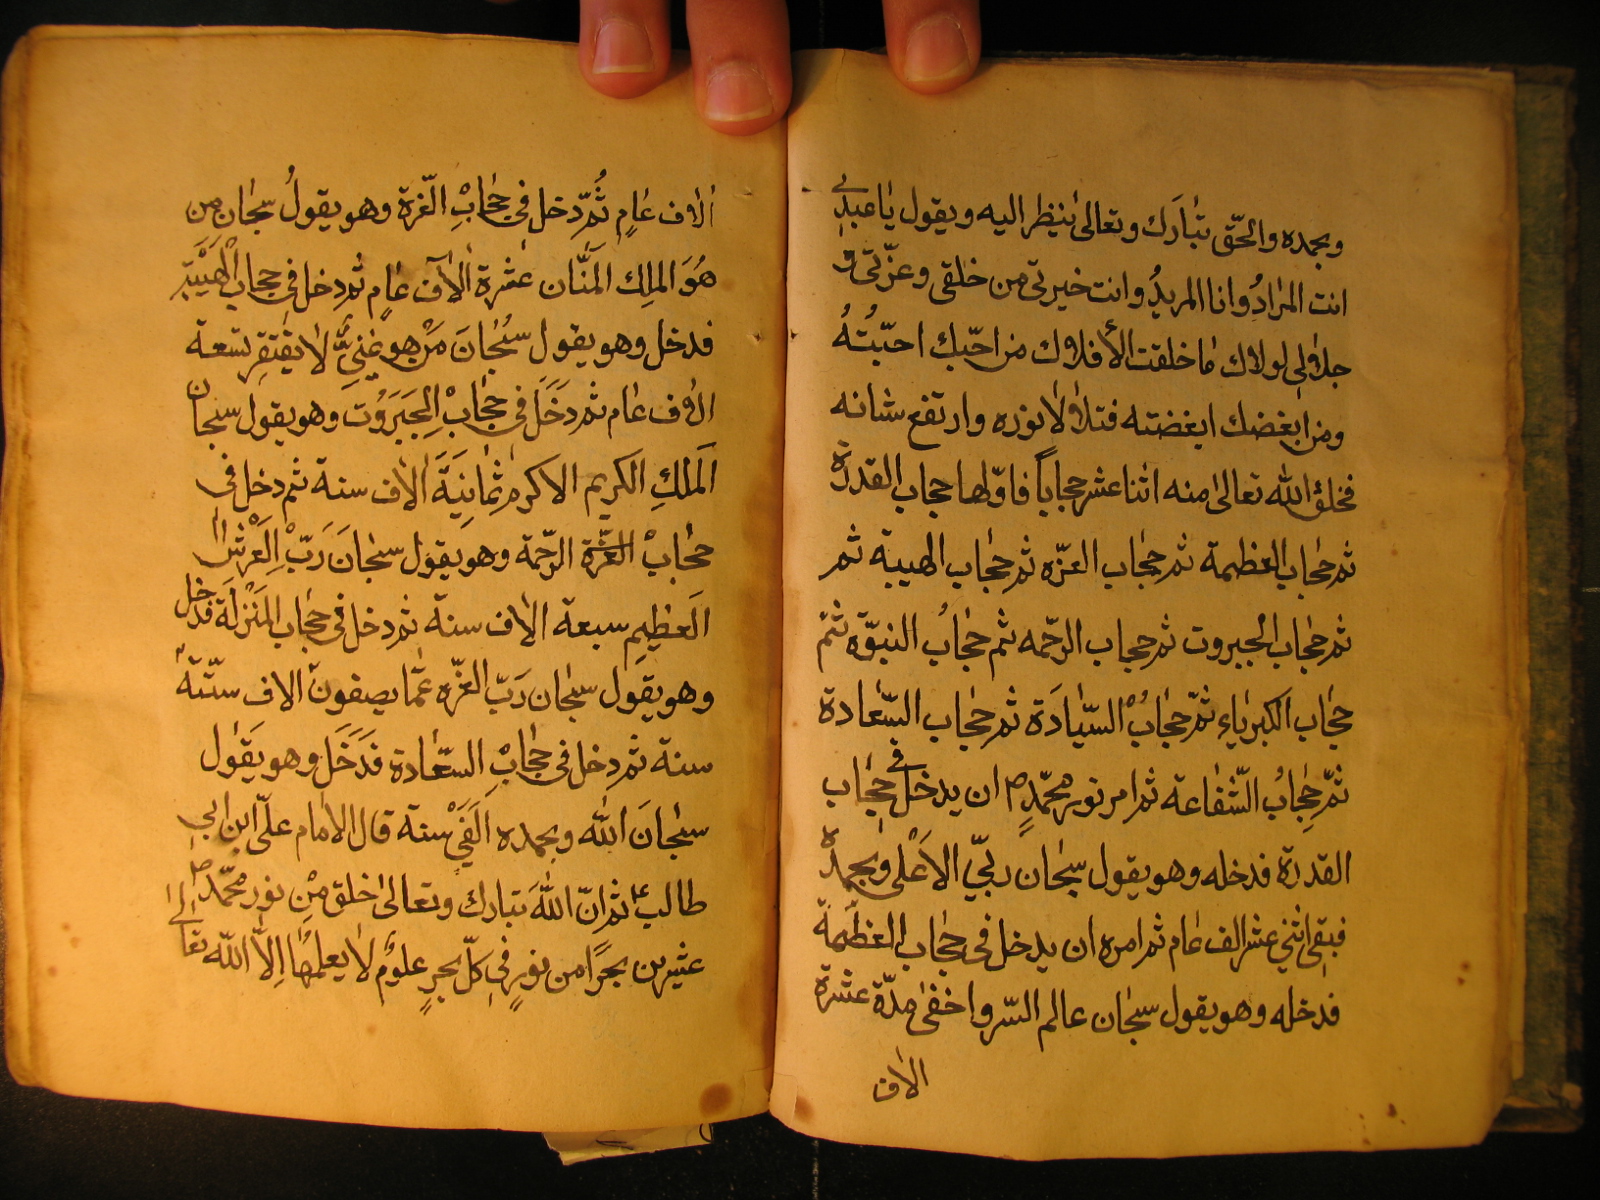 وبحمده والحق تبارك وتعالى ينظر اليه ويقول يا عبدي
انت المراد وانا المريد وانت خيرتي من خلقي وعزّتي و
جلالي لولاك ما خلقت الأفلاك من احبّك احبّبتهُ
ومن ابغضك ابغضته فتلألأ نوره وارتفع شانه
فخلق الله تعالى منه اثنا عشر حجاباً فاوّلها حجاب القدرة
ثم حجاب العظمة ثم حجاب العزّه ثم حجاب الهيبة ثم
ثم حجاب الجبروت ثم حجاب الرحمه ثم حجابُ النبوّه ثمّ
حجاب الكبرياء ثمّ حجابُ السّيادَة ثم حجاب السّعادة
ثمّ حجابُ الشّفاعة ثم امر نور محمّدٍ ص ان يدخل في حجاب
القدرة فدخله وهو يقول سبحان ربّيّ الاَعْلى وبحمده
فبقى اثني عشر الف عام ثم امره ان يدخل في حجاب العظمة
فدخله وهو يقول سبحان عالم السّر واخفى مدّة عشرة
الاف
الاف عامٍ ثُمّ دخل في حجابْ العّزة وهو يقولُ سبحان من
هُوَ الملِك المَنّان عشرة الآف عامٍ ثم دخل في حجاب الْهَيْبَة
فدخل وهو يقول سُبْحَانَ مَنْ هو غَنِيٌّ لا يفتقِر تسعة
الاف عام ثم دخَلَ في حجابْ الجَبَرَوُت وهو يقول سبحان
المَلكِ الكريم الاكرم ثمانِيَةَ الاف سنة ثم دخل في
حجابْ العزّة الرحّمة وهو يقول سبحانَ رَبّْ العَرْش
العَظيم سبعة الاف سنة ثم دخل في حجاب المَنْزلَة فدخل
وهو يقول سبحان رَبّ العزّه عمّا يصفون الاف ستّة
سنة ثم دخل في حجابْ السّعادة فدَخَل وهو يقول
سبحانَ الله وبحمده الفَيْ سنة قال الامام عليّ ابن ابي
طالب ع ثم انّ اللهَ تبارك وتعالى خلق مِنْ نور محمّد ص
عشرين بحرًا من نورٍ في كلّ بحرٍ علومٌ لا يعلمُها إلاّ الله تعالى